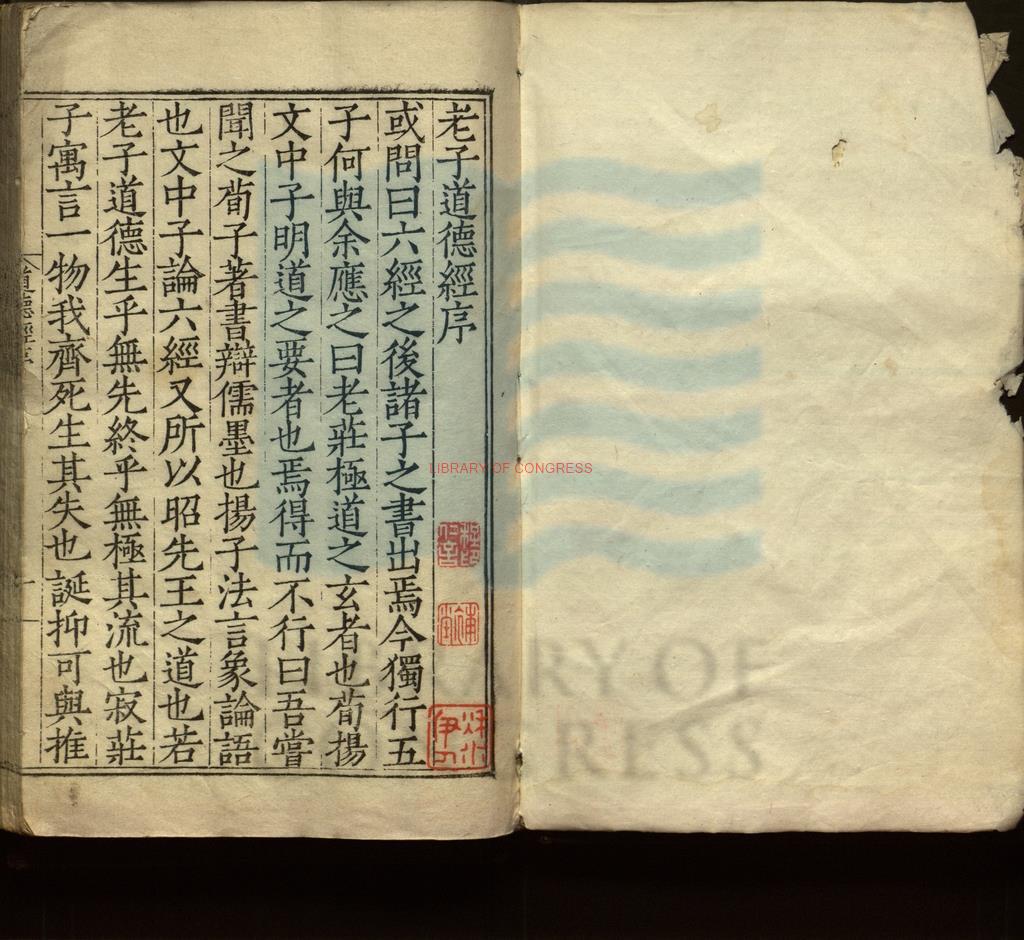 老子道德經序
或問曰六經之後諸子之書出焉今獨行五
子何與余應之曰老莊極道之玄者也荀揚
文中子明道之要者也焉得而不行曰吾嘗
聞之荀子著書辯儒墨也揚子法言象論語
也文中子論六經又所以昭先王之道也若
老子道德生乎無先終乎無極其流也寂莊
子寓言一物我齊死生其失也誕抑可與推
道德經序
LIBRARY OF CONGRESS